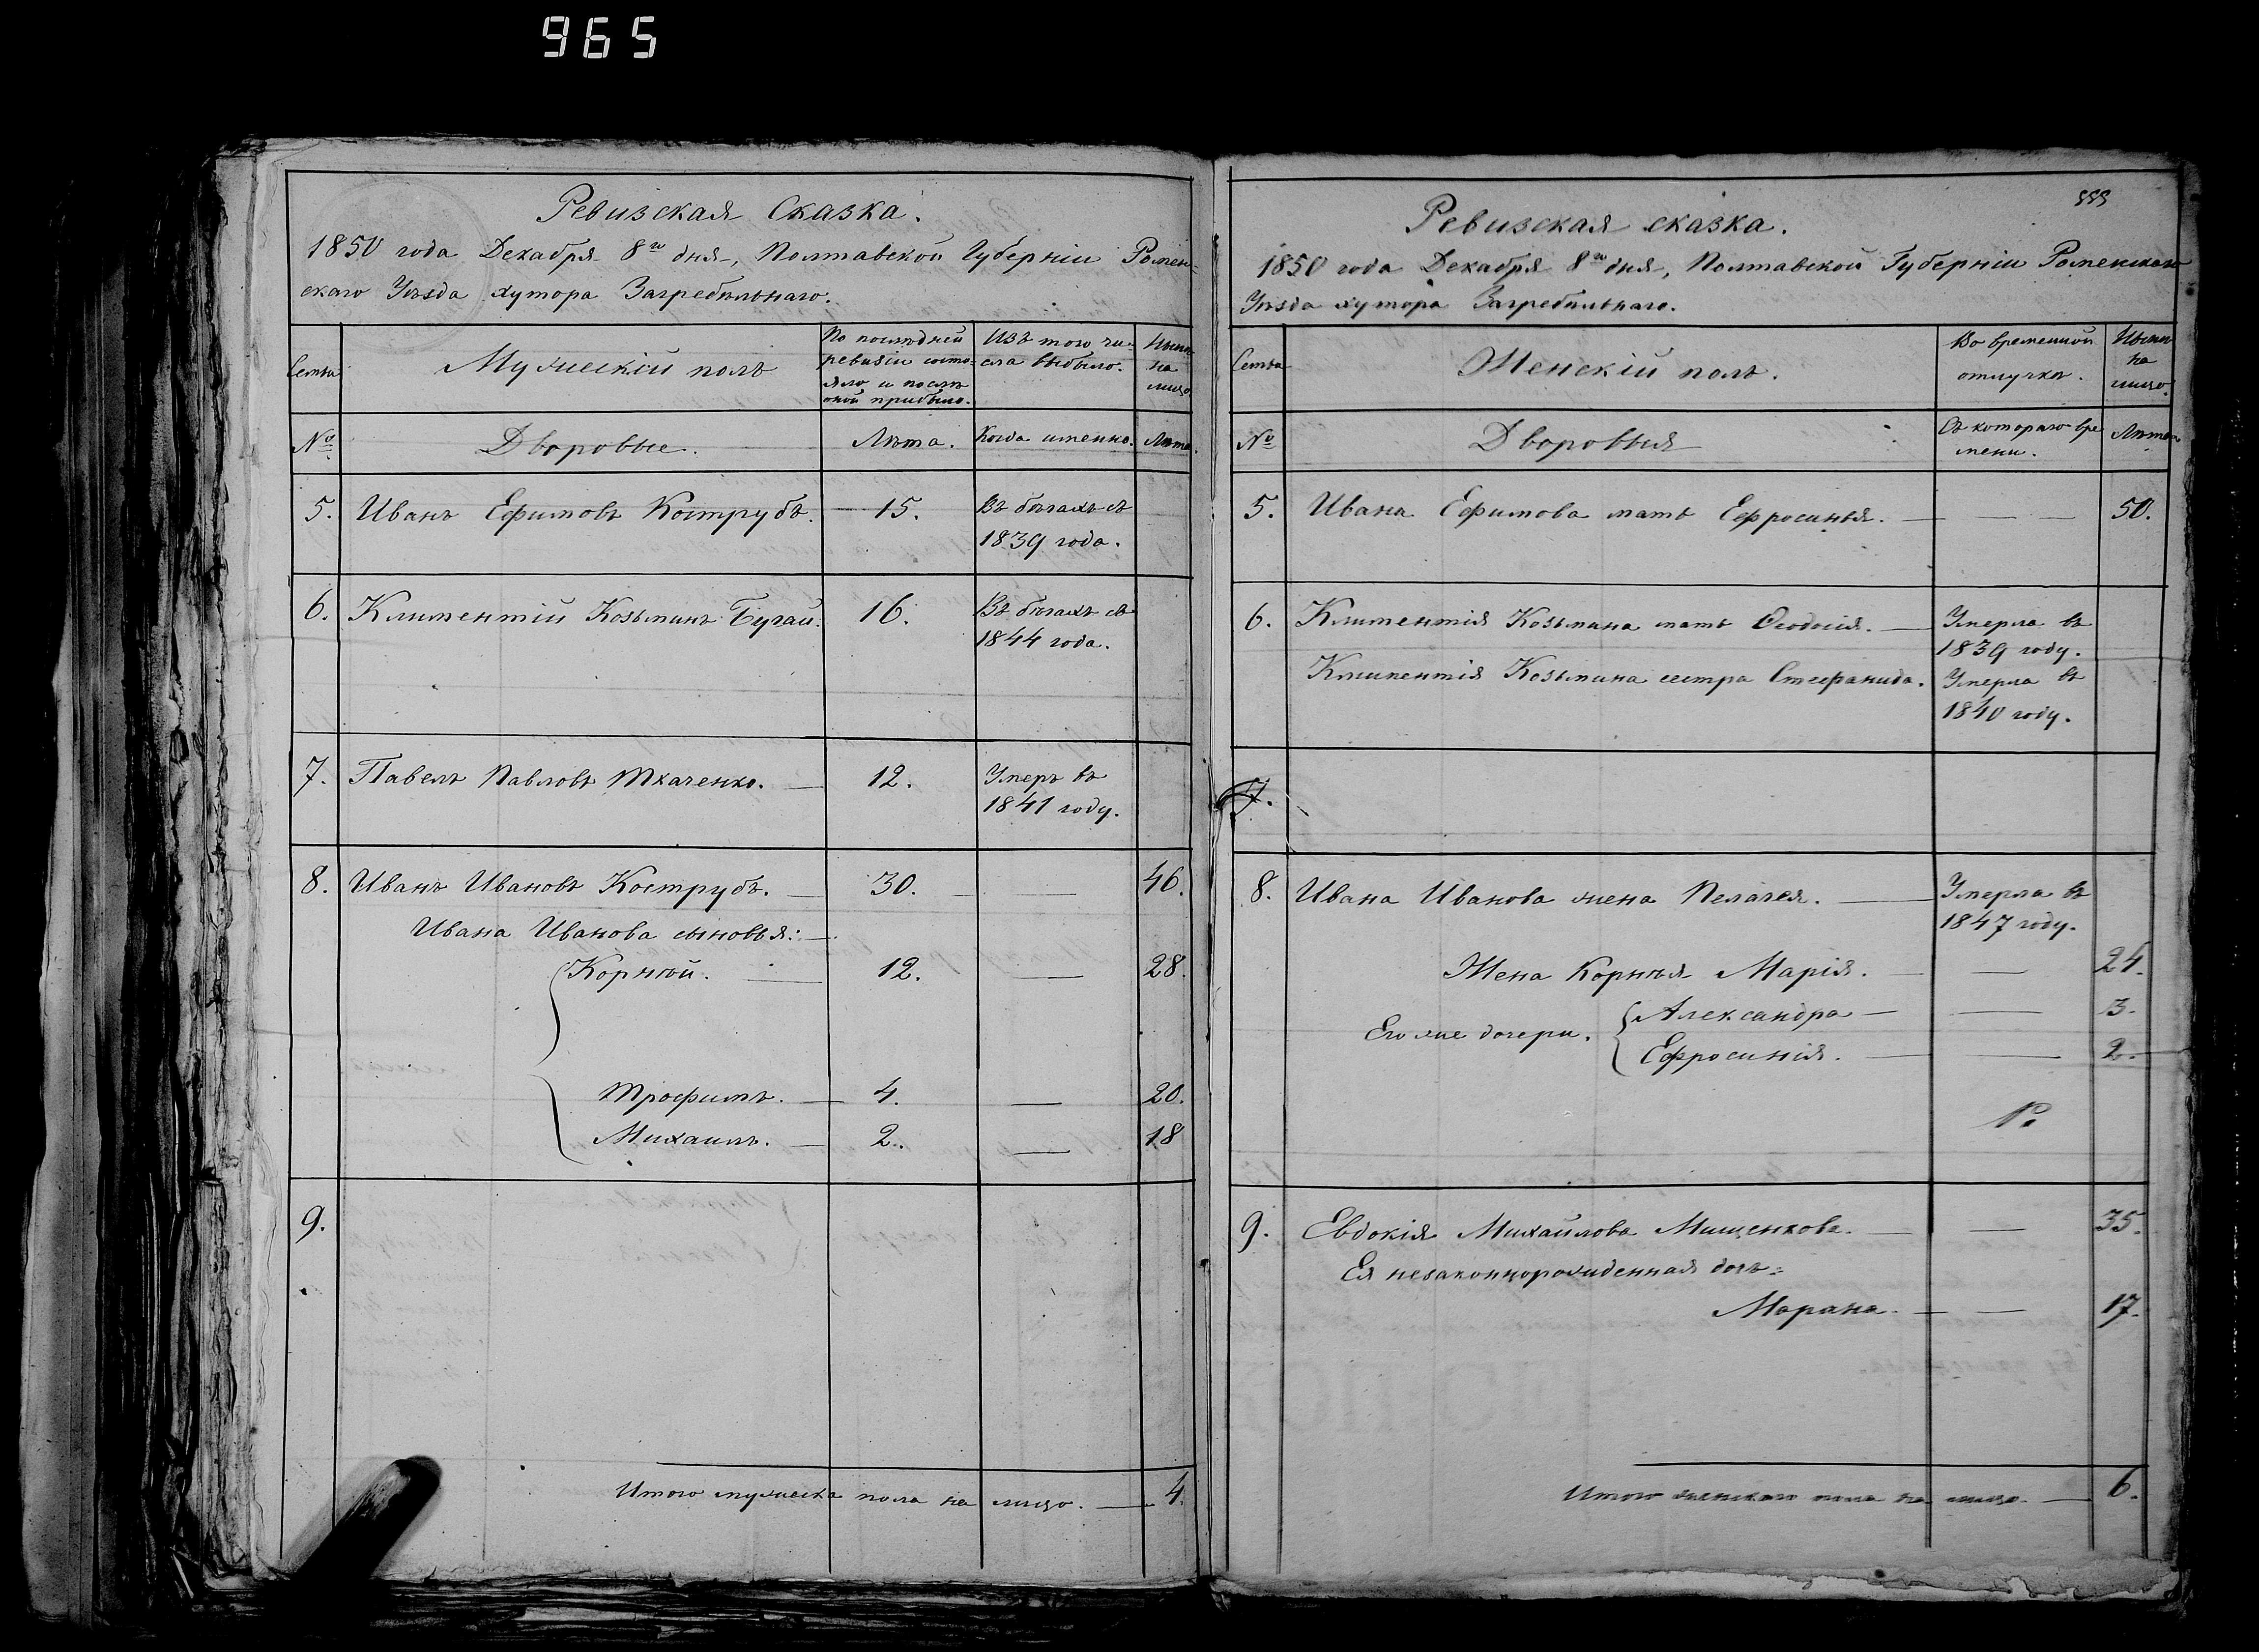 965
Ревизская Сказка.
1850 года Декабря 8го дня, Полтавской Губерніи Ромен-
скаго Уѣзда хутора Загребильнаго.
Семья
Мужескій полъ
По послѣдней ревизіи состо-
яло и послѣ оной прибыло.
Изъ того чи-
сла выбыло.
Нынѣ
на
лицо
№
Дворовые.
Лѣта.
Когда именно.
Лѣта.
5. Иванъ Ефимовъ Кострубъ. 15. Въ бѣгахъ съ
1839 года.
6. Климентій Козьминъ Бугай. 16. Въ бѣгахъ съ
1844 года.
7. Павелъ Павловъ Ткаченко. — 12. Умеръ въ
1841 году.
8. Иванъ Ивановъ Кострубъ. — 30. — 46.
Ивана Иванова сыновья: —
Корнѣй. — 12. — 28.
Трофимъ. — 4. — 20.
Михаилъ. — 2. — 18
9.
Итого мужеска пола на лицо. — 4.
333
Ревизская сказка.
1850 года Декабря 8го дня, Полтавской Губерніи Роменскаго
Уѣзда хутора Загребильнаго.
Семья
Женскій полъ.
Во временной
отлучкѣ.
Нынѣ
на
лицо.
№
Дворовыя
Съ котораго вре
мени.
Лѣта.
5. Ивана Ефимова мать Ефросинья. — — — 50.
6. Климентія Козьмина мать Ѳеодосія. — Умерла въ
1839 году.
Климентія Козьмина сестра Стефанида. Умерла въ
1840 году.
7.
8. Ивана Иванова жена Пелагея. — Умерла въ
1847 году.
Жена Корнѣя Марія. — — 24.
Его же дочери. Александра — — 3.
Ефросинія. — — 2.
9. Евдокія Михайлова Мищенкова. — — 35.
Ея незаконнорожденная дочь:
Марана. — — 17.
Итого женскаго пола на лицо. — 6.